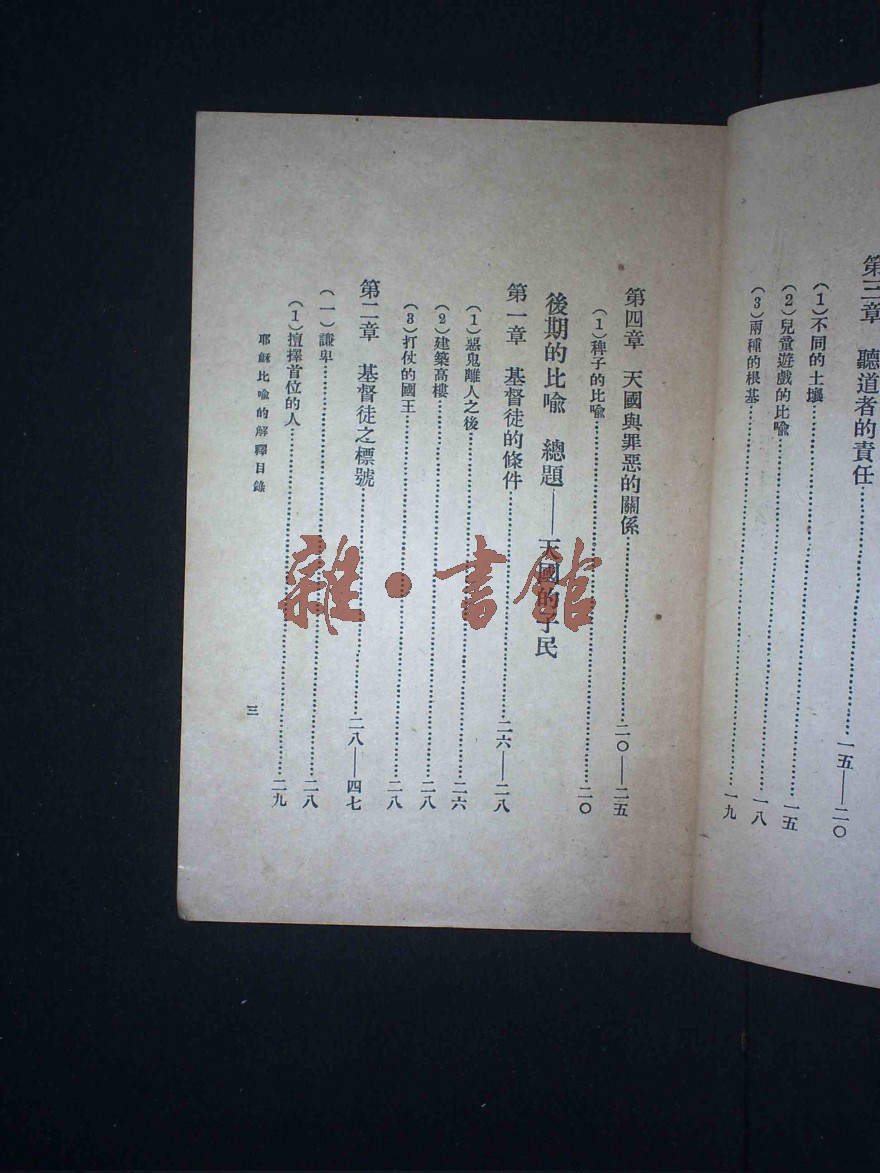 第三章　聽道者的責任……一五——二〇
（1）不同的土壤
（2）兒童遊戲的比喻……一五
（3）兩種的根基……一八
一九
第四章　天國與罪惡的關係……二〇——二五
（1）稗子的比喻……二〇
後期的比喻　總題——天國的子民
第一章　基督徒的條件……二六——二八
（1）惡鬼離人之後……二六
（2）建築高樓……二八
（3）打仗的國王……二八
第二章　基督徒之標號……二八——四七
（一）謙卑……二八
（1）揎擇首位的人……二九
耶穌比喻的解釋目錄
三
雜·書館